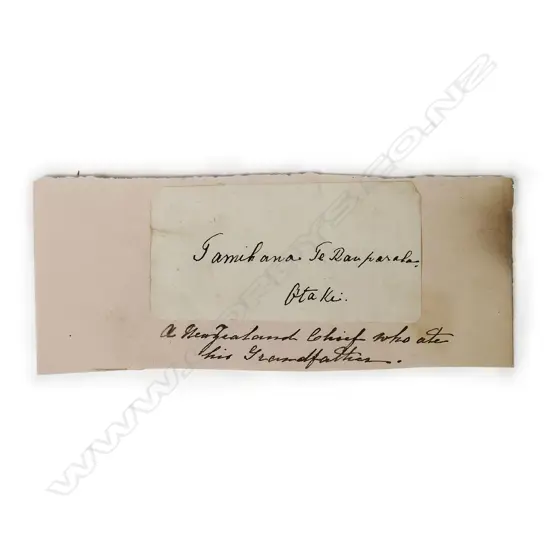 Tamihana Te Rauparaha
Otaki.
A New Zealand Chief who ate
his Grandfather.
WWW.CORDYS.CO.NZ